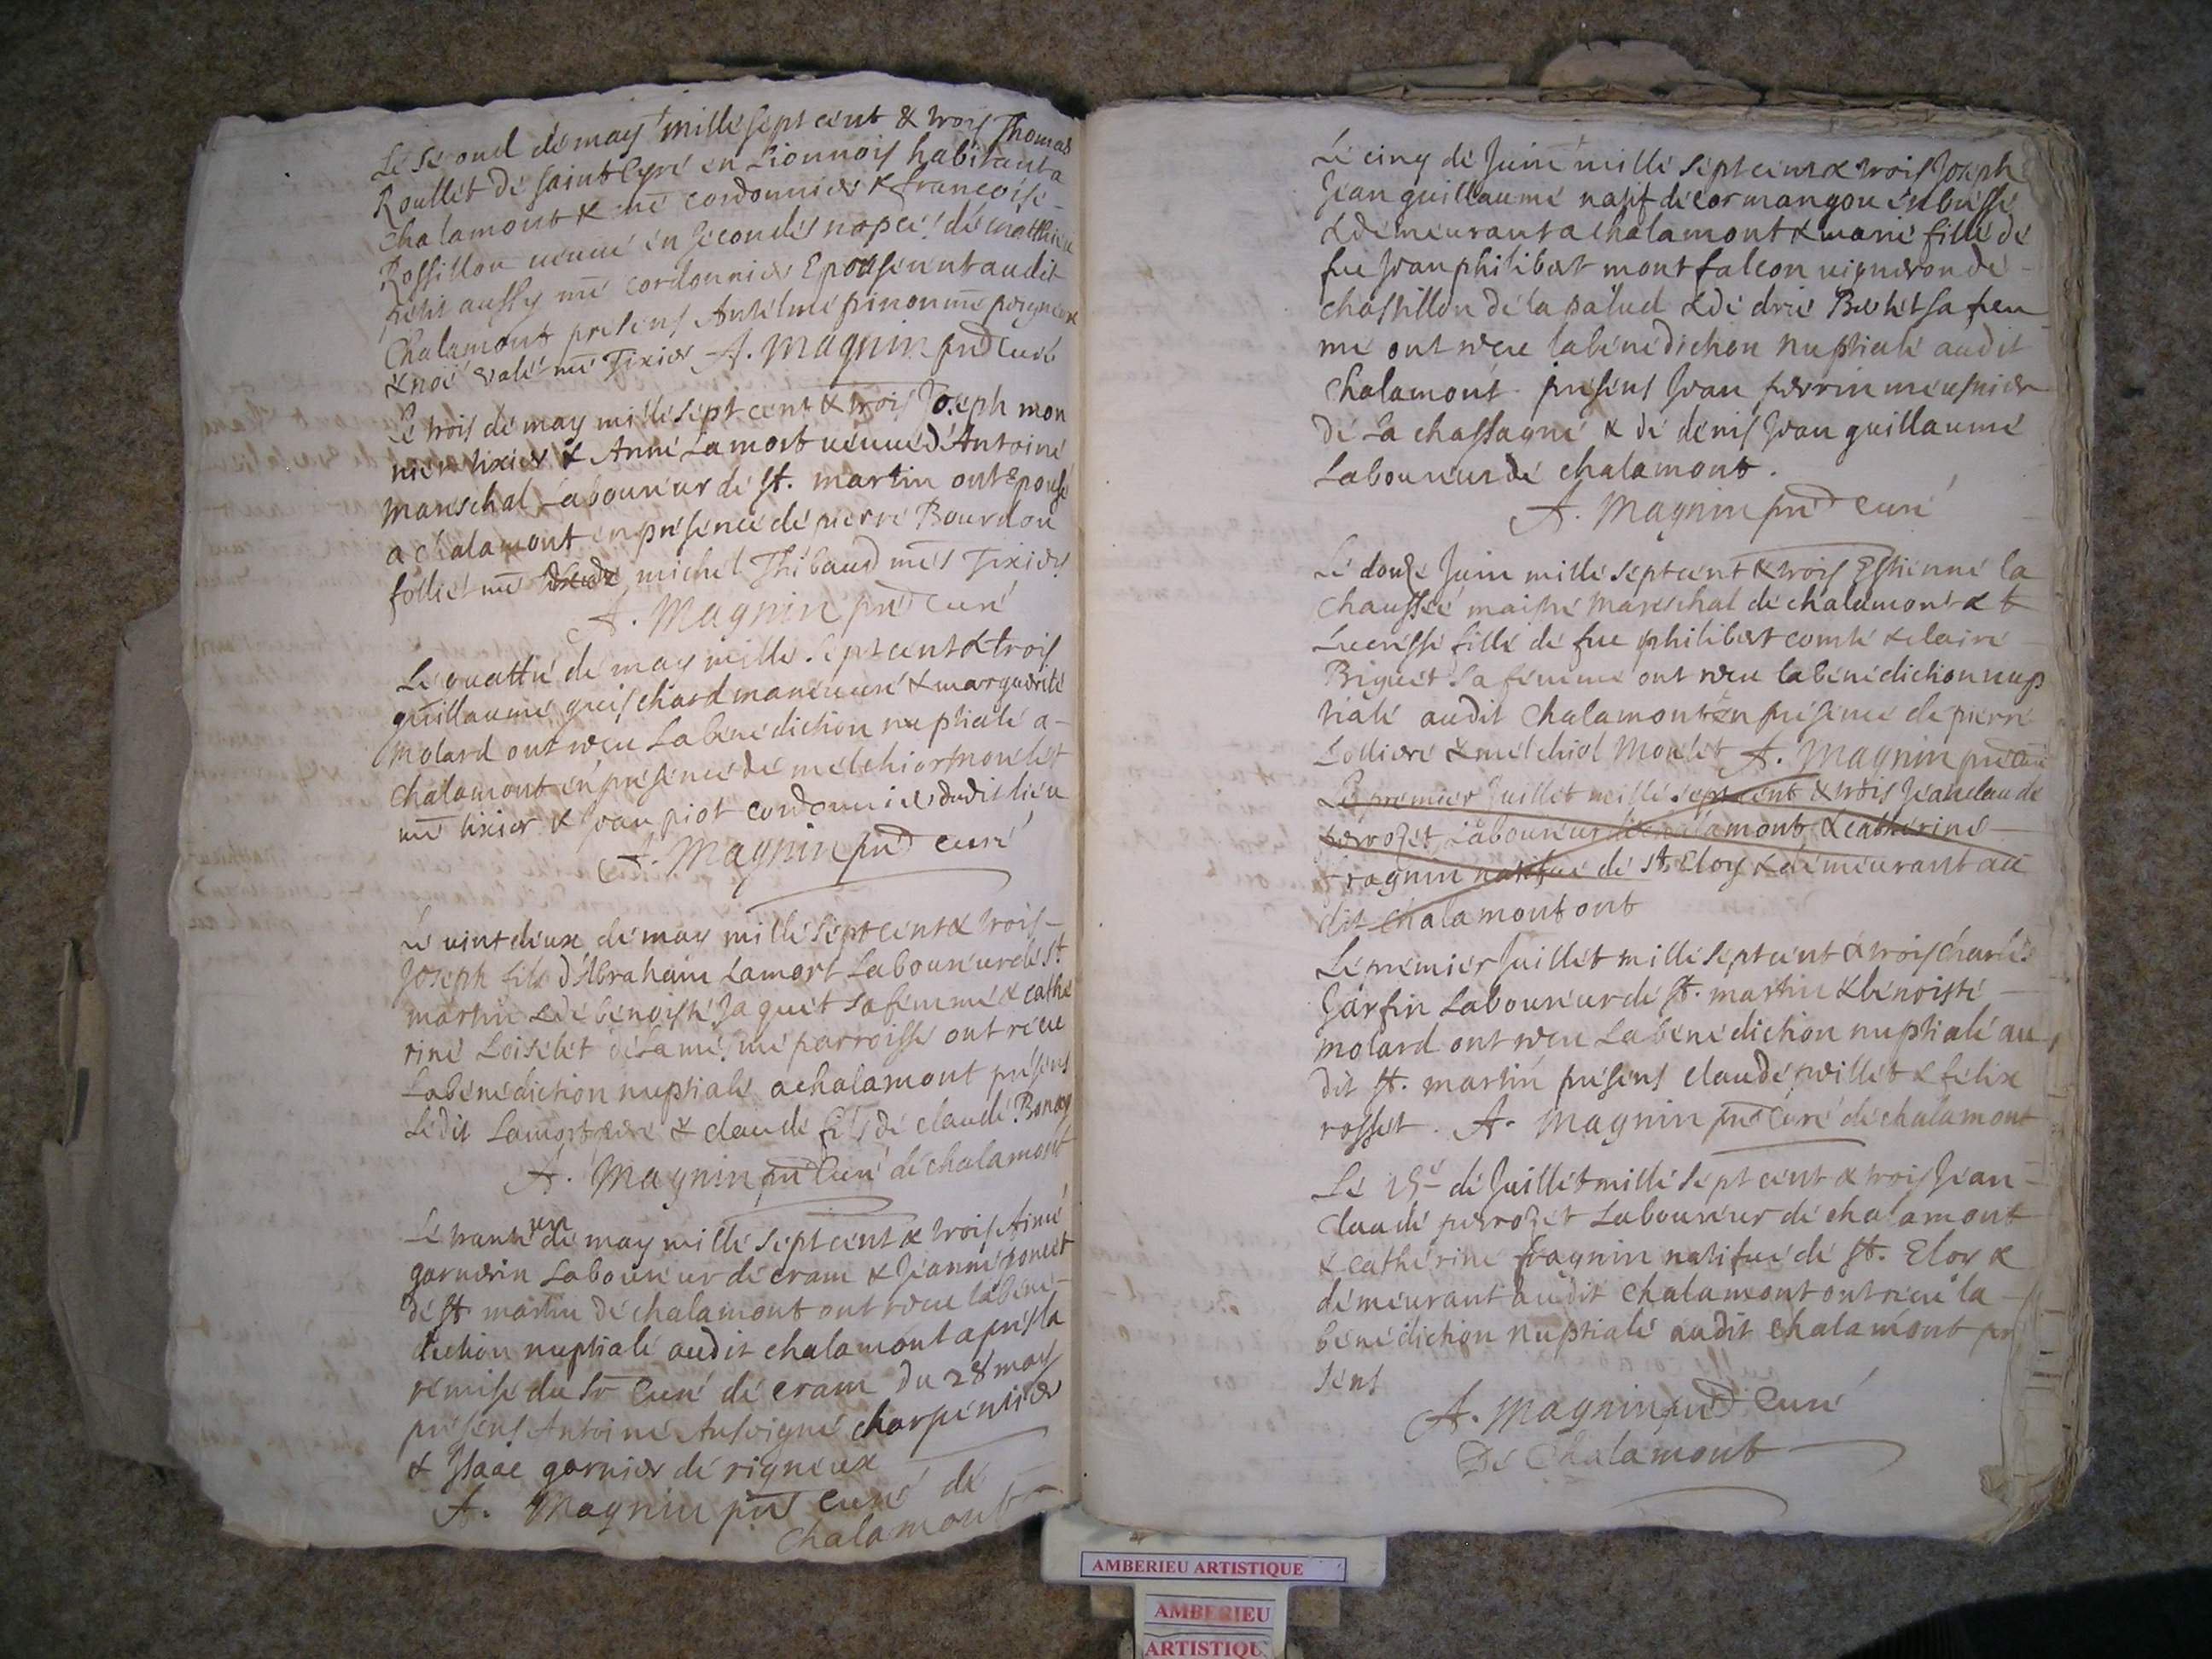 Le second de may mille sept cent & trois Thomas
Roullet de saint Cyre en Lionnois habitant a
Chalamont & me cordonnier & francoise
Rossillon veuve en secondes nopces de matthieu
petit aussy me cordonnier Epousèrent audit
Chalamont presens Antelme pinon me peigneur
& noé me Tixier A. Magnin pre Curé
Le trois de may mille sept cent & trois Joseph mon
nier tixier & Anne Lamort veuve d'Antoine
Mareschal Laboureur de St. martin ont Epousé
a chalamont en présence de pierre Bourdon
folliet me michel Thibaud mes Tixiers
A. Magnin pre Curé
Le quattre de may mille sept cent & trois
guillaume greischard maneuvre & marguerite
Molard ont receu La benediction nuptiale a
Chalamont en présence de melchior morelet
me tixier & jean piot cordonnier dudit lieu
A. Magnin pre Curé
Le vint deux de may mille sept cent & trois
Joseph fils d'Abraham Lamort Laboureur de St
martin & de benoiste Jaquet sa femme & cathe
rine Loiselet de la mesme parroisse ont receu
La bénédiction nuptiale a chalamont présens
Ledit Lamort père & claude fils de claude Bonay
A. Magnin pre Curé de chalamont
Le trante un de may mille sept cent & trois Aimé
garnerin Laboureur de cram & Jeanne poncet
de St martin de chalamont ont receu la béné
diction nuptiale audit chalamont après la
remise du Sr Curé de cram du 28 may
présens Antoine charpentier
& Isaac garnier de rigneux
A. Magnin pre Curé de
chalamont
Le cinq de Juin mille sept cent & trois Joseph
Jean guillaume natif de cormangou en bresse
& demeurant a chalamont & marie fille de
feu Jean philibert montfalcon vigneron de
chastillon de la palud & de drie Berlet sa fem
me ont receu la bénédiction nuptiale audit
Chalamont présens Jean perrin meusnier
de La chassagne & de denis Jean guillaume
Laboureur de chalamont.
A. Magnin pre Curé
Le douze Juin mille sept cent & trois Estienne la
chaussée maistre Mareschal de chalamont &
Lucresse fille de feu philibert comte & claire
Briguet sa femme ont receu la bénédiction nup
tiale audit Chalamont en présence de pierre
Lolliere & melchiol Morelet A. Magnin pre Curé
Le premier Juillet mille sept cent & trois Jean claude
perrozet Laboureur de chalamont & catherine
fragnin natifue de St. Eloy & demeurant au
dit chalamont ont
Le premier Juillet mille sept cent & trois charles
Jarfin Laboureur de St. martin & benoiste
Molard ont receu La bénédiction nuptiale au
dit St. martin présens claude & felix
rosset. A. Magnin pre Curé de chalamont
Le de Juillet mille sept cent & trois Jean
claude perrozet Laboureur de chalamont
& catherine fragnin natifue de St. Eloy &
demeurant audit Chalamont ont receu la
bénédiction Nuptiale audit Chalamont pre
sens
A. Magnin pre Curé
De Chalamont
AMBERIEU ARTISTIQUE
AMBERIEU
ARTISTIQU